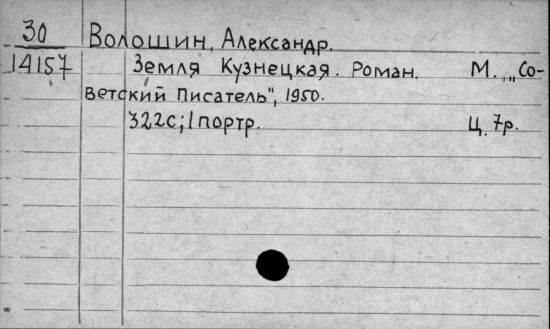 30 Волошин, Александр.
14157 Земля Кузнецкая. Роман. М., „Со-
ветский Писатель", 1950.
322с; 1 портр. Ц. 7р.